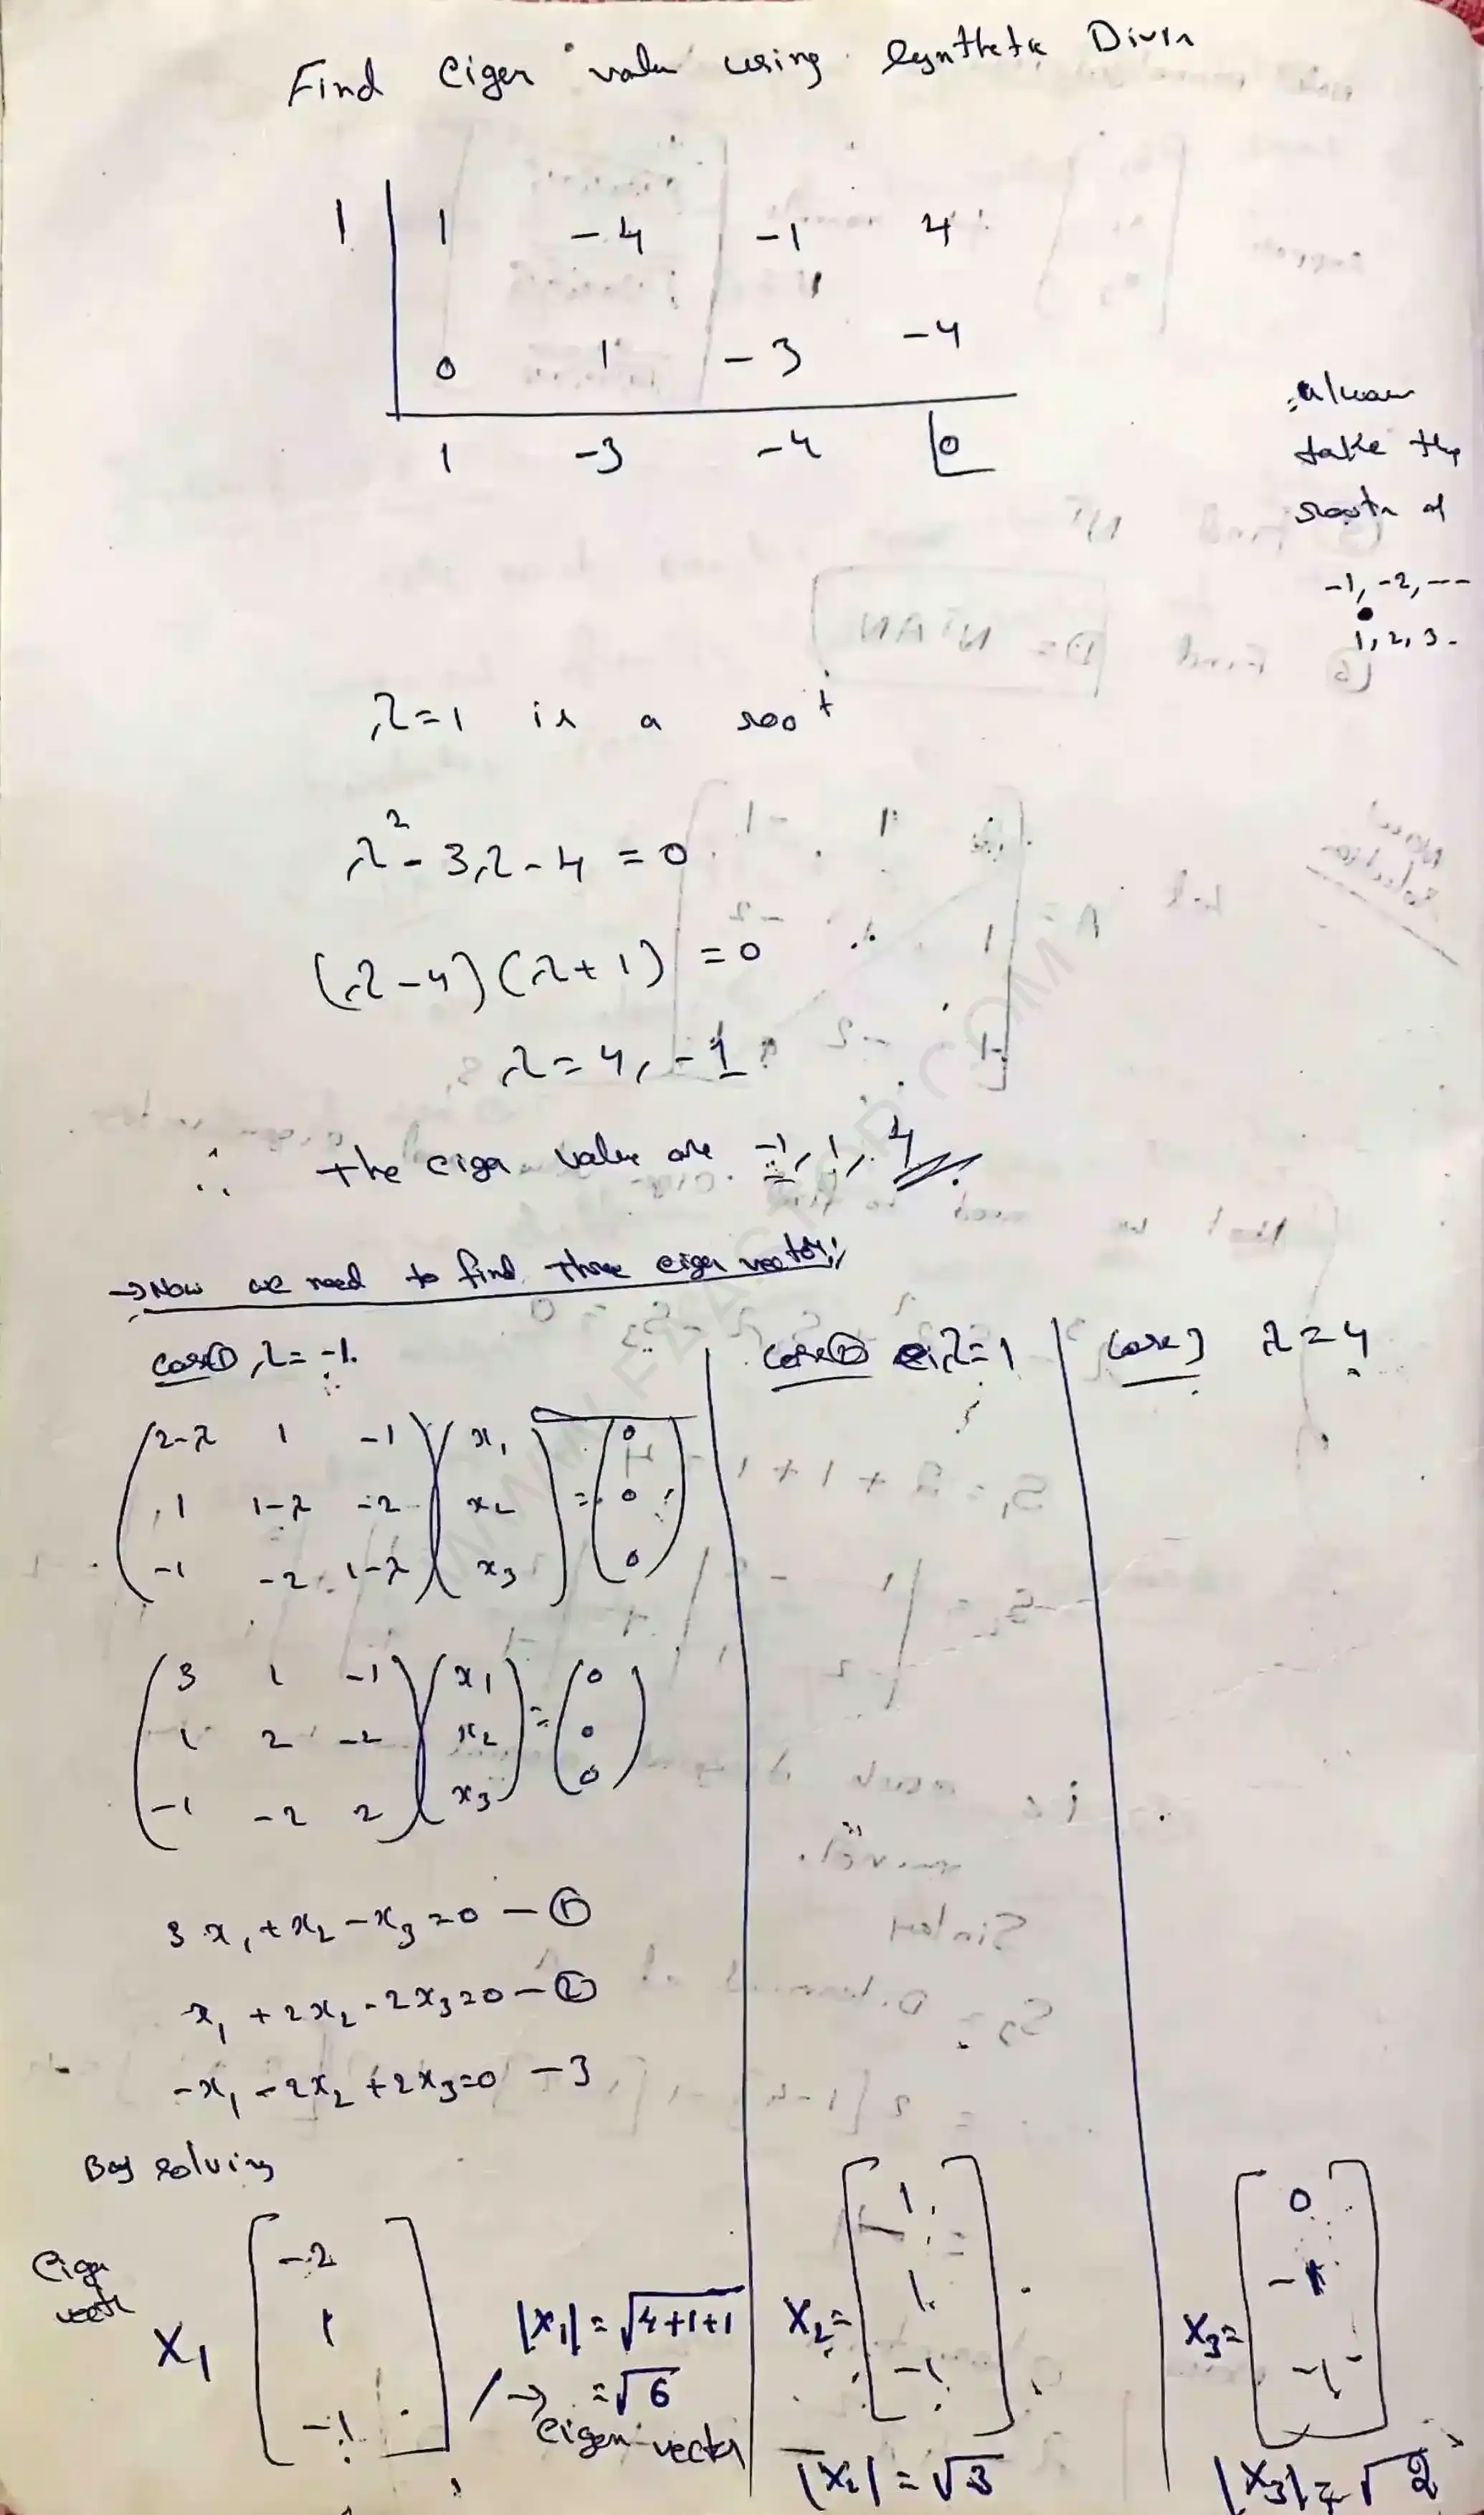 Find Eigen value using Synthetic Divin
1 | 1 -4 -1 4
0 1 -3 -4
1 -3 -4 |0
take the
roots of
-1, -2, --
1, 2, 3.
λ=1 is a root
λ² - 3λ - 4 = 0
(λ-4)(λ+1) = 0
λ = 4, -1
∴ the eigen value are -1, 1, 4
→ Now we need to find three eigen vector;
case① λ = -1.
(2-λ 1 -1) (x₁) = (0)
(1 1-λ -2) (x₂) (0)
(-1 -2 1-λ) (x₃) (0)
(3 1 -1) (x₁) = (0)
(1 2 -2) (x₂) (0)
(-1 -2 2) (x₃) (0)
3x₁ + x₂ - x₃ = 0 - ①
x₁ + 2x₂ - 2x₃ = 0 - ②
-x₁ - 2x₂ + 2x₃ = 0 - 3
By solving
Eigen
vector
X₁ [-2
1
-1]
/→
|X₁| = √4+1+1
= √6
Eigen vector
case② λ=1
X₂ = [1
1
-1]
|X₂| = √3
case3 λ = 4
X₃ = [0
-1
-1]
|X₃| = √2